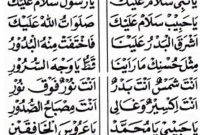 يَا نَبِي سَلَامٌ عَلَيْكَ يَا رَسُولْ سَلَامٌ عَلَيْكَ
يَا حَبِيبْ سَلَامٌ عَلَيْكَ صَلَوَاتُ اللهِ عَلَيْكَ
أَشْرَقَ الْبَدْرُ عَلَيْنَا فَاخْتَفَتْ مِنْهُ الْبُدُورُ
مِثْلَ حُسْنِكَ مَا رَأَيْنَا قَطُّ يَا وَجْهَ السُّرُورِ
أَنْتَ شَمْسٌ أَنْتَ بَدْرٌ أَنْتَ نُورٌ فَوْقَ نُورٍ
أَنْتَ إِكْسِيرٌ وَغَالِي أَنْتَ مِصْبَاحُ الصُّدُورِ
يَا حَبِيبِي يَا مُحَمَّدُ يَا عَرُوسَ الْخَافِقَيْنِ